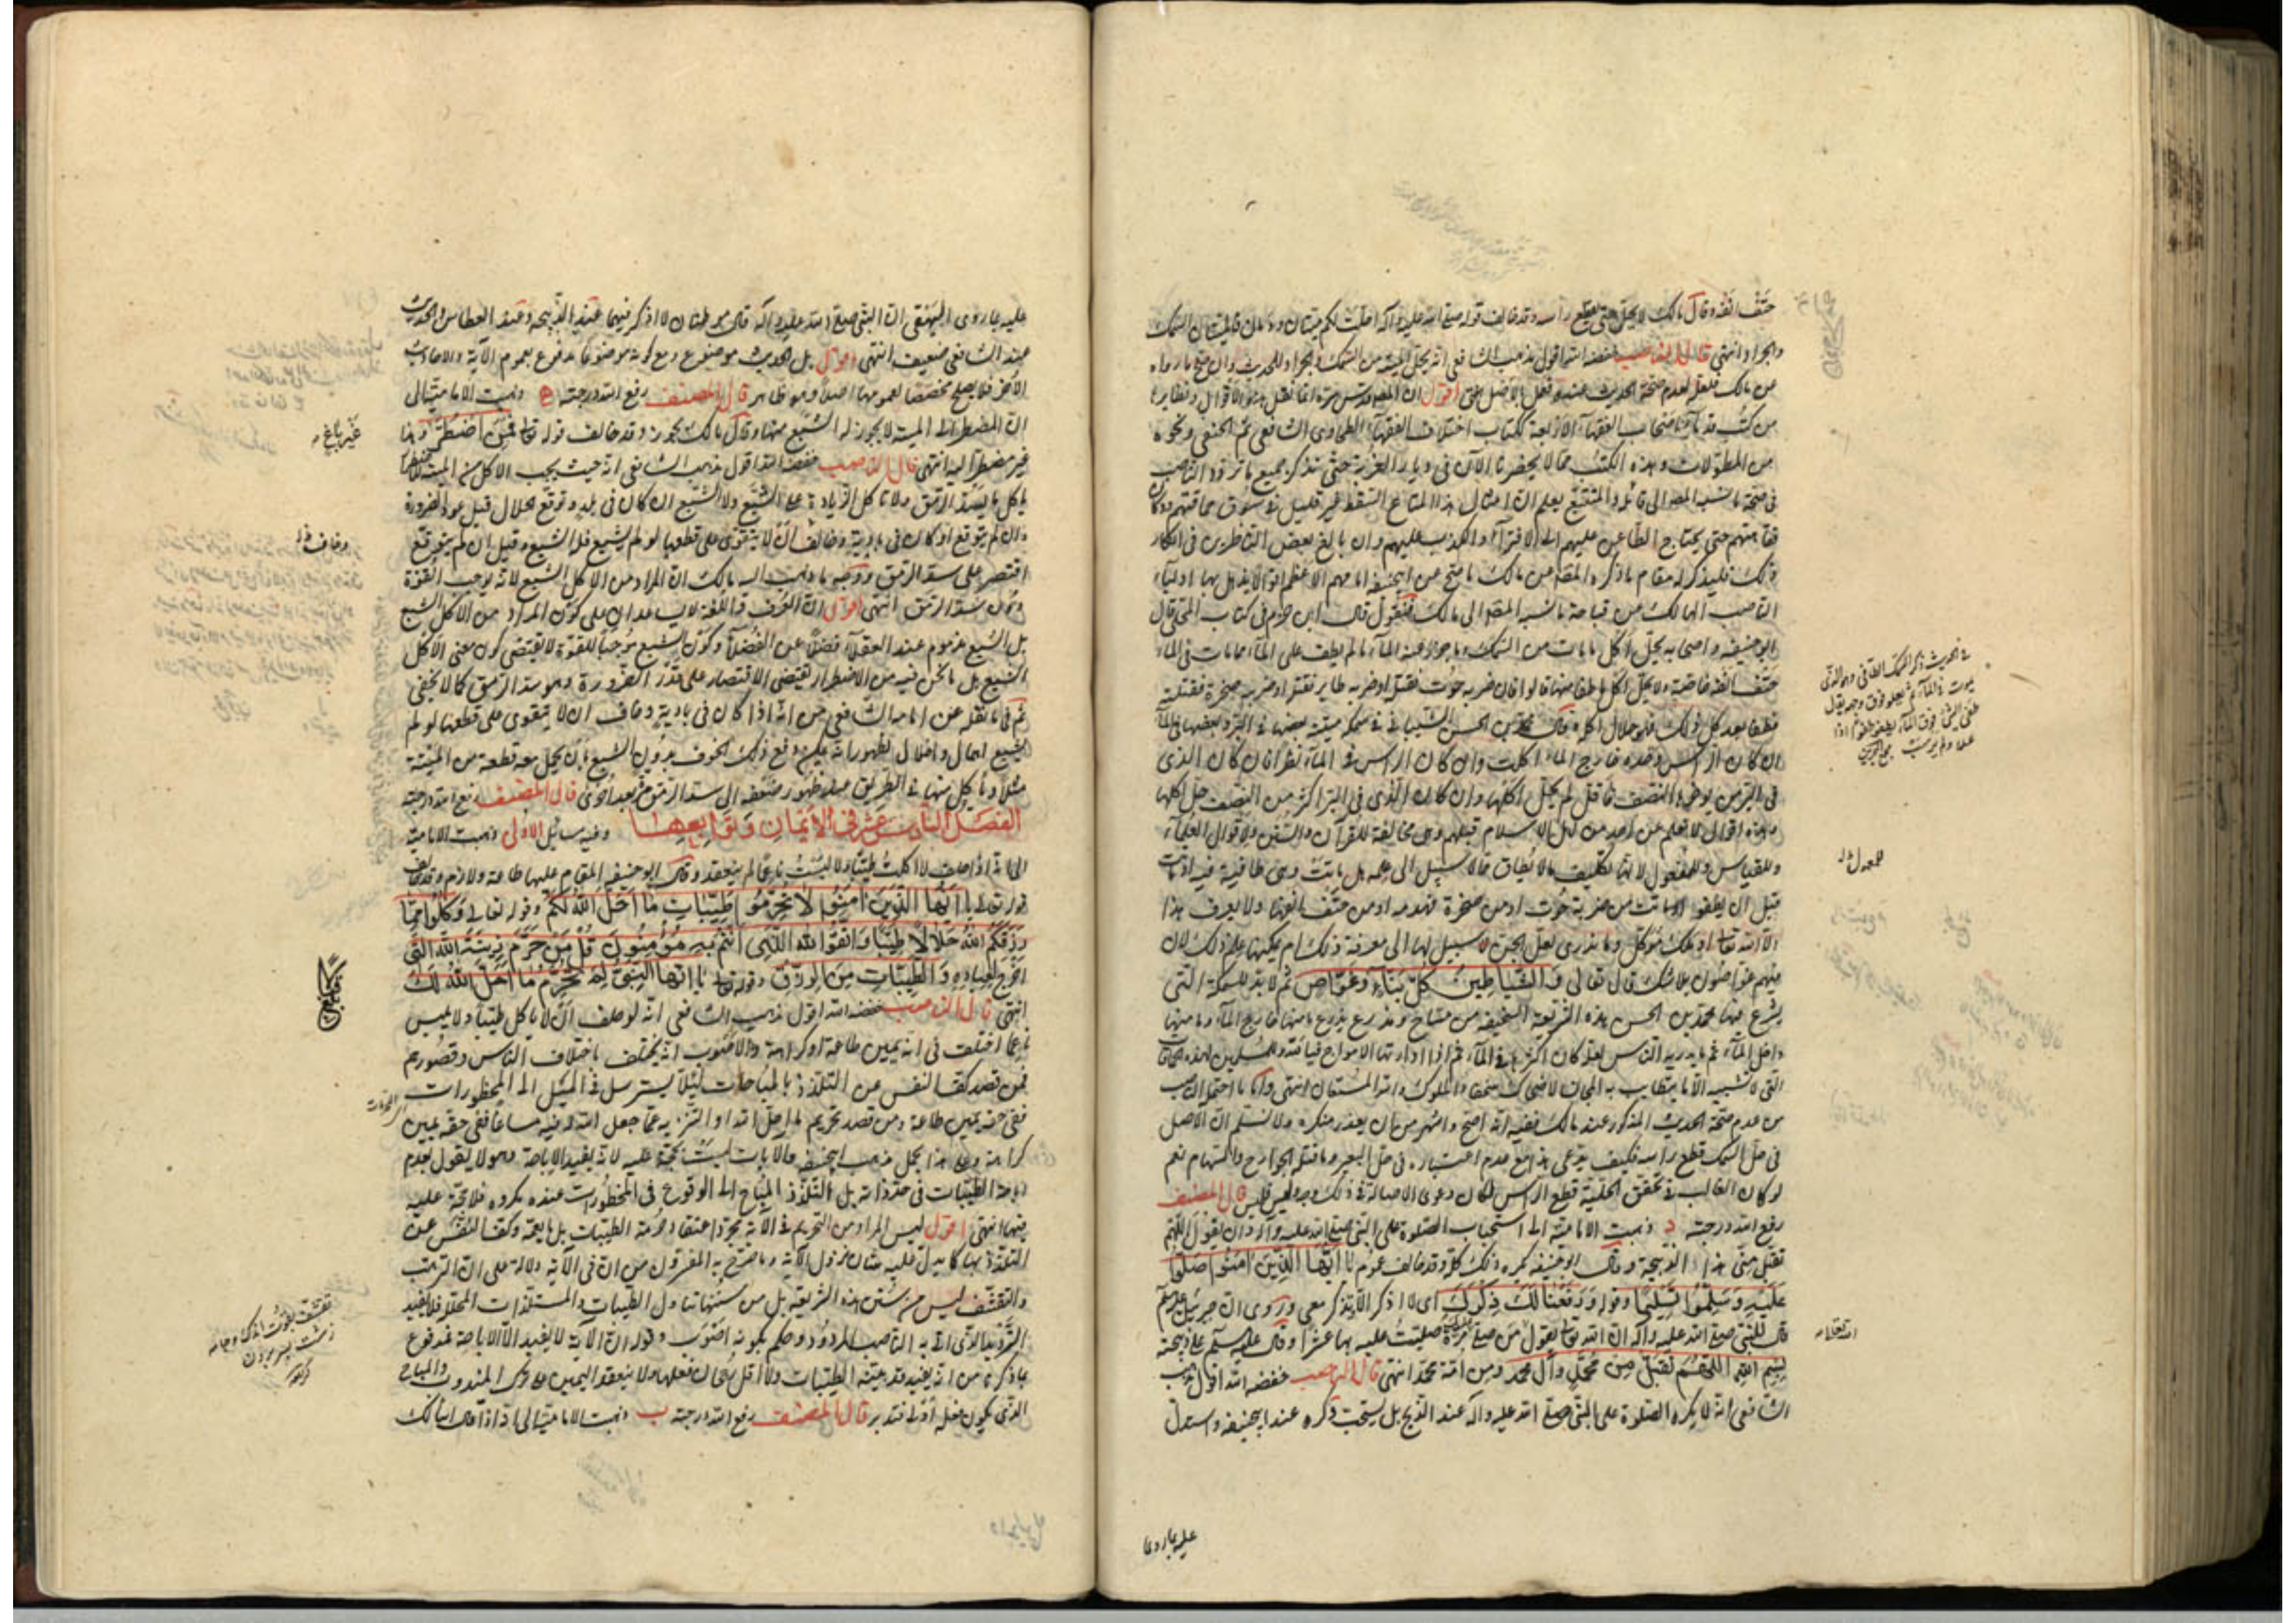 حتف انفه وقال مالك لا يحل حتى يقطع راسه وقد خالف قوله صلى الله عليه وآله احلت لكم ميتتان ودمان فالميتتان السمك
والجراد انتهى قال الناصب خفضه الله اقول مذهب الشافعي انه يحل الميتة من السمك والجراد للحديث وان صح ما رواه
عن مالك فلعله لعدم صحة الحديث عنده وعمل بالاصل انتهى اقول ان المصنف قدس سره انما نقل هذه الاقوال ونظايرها
من كتب قدماء اصحاب الفقهاء الاربعة ككتاب اختلاف الفقهاء للطحاوي الشافعي ثم الحنفي ونحوه
من المطولات وهذه الكتب مما لا يحضرنا الآن في ديار الغربة حتى نتذكر جميع ما تردد الناصب
في صحة ما نسبه المصنف الى قائله والمتتبع يعلم ان امثال هذا المتاع السقط غير قليل في سوق حماقتهم ودكان
فقاهتهم حتى يحتاج الطاعن عليهم الى الافتراء والكذب عليهم وان بالغ بعض الناظرين في انكار
ذلك فليذكر له مقام ما ذكره المصنف عن مالك ما صح عن ابيحنيفة امامهم الاعظم اقوالا يذهل بها اولياء
الناصب الهالك عن قباحة ما نسبه المصنف الى مالك فنقول قال ابن حزم في كتاب المحلى قال
ابو حنيفة واصحابه يحل اكل ما مات من السمك وما جزر عنه الماء ما لم يطف على الماء مما مات في الماء
حتف انفه خاصة ولا يحل اكل ما طفا منها قالوا فان ضربه حوت فقتله او ضربه طاير فقتله او ضربته صخرة فقتلته
فطفا بعد كل ذلك فهو حلال اكله وقال محمد بن الحسن الشيباني في سمكة ميتة بعضها في البر وبعضها في الماء
ان كان الراس وحده خارج الماء اكلت وان كان الراس في الماء نظر فان كان الذي
في البر من موخرها النصف فما قل لم يحل اكلها وان كان الذي في البر اكثر من النصف حل اكلها
وهذه اقوال لا تعلم عن احد من اهل الاسلام قبلهم وهي مخالفة للقرآن والسنن ولاقوال العلماء
وللقياس وللمعقول لانها تكليف ما لا يطاق مما لا سبيل الى علمه هل ماتت وهي طافية فيه او ماتت
قبل ان يطفو او ماتت من ضربة حوت او من صخرة تهدمه او من حتف انفها ولا يعرف هذا
الا الله تعالى او ملك موكل وما ندري لعل الجن لا سبيل لها الى معرفة ذلك ام يمكنها علم ذلك لان
منهم غواصون بلا شك قال تعالى والشياطين كل بناء وغواص ثم لا بد للسمكة التي
يشرع فيها محمد بن الحسن هذه الشريعة السخيفة من مساح ومذرع يذرع ما منها خارج الماء وما منها
داخل الماء ثم ما يدريه الناس لعله كان اكثرها في الماء ثم اذا ادارتها الامواج فيا لله وللمسلمين لهذه الحماقات
التي لا تشبه الا ما يتطايب به المجان لاضحاك سخفاء الملوك والله المستعان انتهى واما ما احتمله الناصب
من عدم صحة الحديث المذكور عند مالك ففيه انه اصح واشهر من ان يعذر منكره ولا نسلم ان الاصل
في حل السمك قطع راسه فكيف يدعى هذا مع عدم اعتباره في حل البعير وما قتله الجوارح والسهام نعم
لو كان الغالب في تحقق الحلية قطع الراس لكان دعوى الاصالة في ذلك وجه وليس فليس قال المصنف
رفع الله درجته د ذهبت الامامية الى استحباب الصلوة على النبي صلى الله عليه وآله وان يقول اللهم
تقبل مني هذه الذبيحة وقال ابو حنيفة يكره ذلك كله وقد خالف عموم يا ايها الذين آمنوا صلوا
عليه وسلموا تسليما وقوله ورفعنا لك ذكرك اى لا اذكر الا وتذكر معي وروى ان جبرئيل عليه السلم
قال للنبي صلى الله عليه وآله ان الله تعالى يقول من صلى عليك مرة صليت عليه بها عشرا وقال عليه السلم على ذبيحته
بسم الله اللهم تقبل من محمد وآل محمد ومن امة محمد انتهى قال الناصب خفضه الله اقول مذهب
الشافعي انه لا يكره الصلوة على النبي صلى الله عليه وآله عند الذبح بل يستحب ويكره عند ابيحنيفة واستدل
في الحديث ذكر السمك الطافي وهو الذي
يموت في الماء ثم يعلو فوق وجهه يقول
طفى الشئ فوق الماء يطفو طفوا اذا
علا ولم يرسب
عليه بما روى
عليه بما روى البيهقي ان النبي صلى الله عليه وآله قال موطنان لا اذكر فيهما عند الذبيحة وعند العطاس والحديث
عند الشافعي ضعيف انتهى اقول بل الحديث موضوع ومع كونه موضوعا مدفوع بعموم الآية والاحاديث
الاخر فلا يصلح مخصصا لعمومها اصلا وهو ظاهر قال المصنف رفع الله درجته ه ذهبت الامامية الى
ان المضطر الى الميتة لا يجوز له الشبع منها وقال مالك يجوز وقد خالف قوله تعالى فمن اضطر وهذا
غير مضطر اليه انتهى قال الناصب خفضه الله اقول مذهب الشافعي انه حيث يجب الاكل من الميتة للمضطر
ياكل ما يسد الرمق ولا تاكل الزيادة على الشبع ولا الشبع ان كان في بلد وتوقع الحلال قبل عود الضرورة
وان لم يتوقع او كان في بادية وخاف ان لا يتقوى على قطعها لو لم يشبع فله الشبع وقيل ان لم يتوقع
اقتصر على سد الرمق ووجه ما ذهب اليه مالك ان المراد من الاكل الشبع لانه يوجب القوة
دون سد الرمق انتهى اقول ان العرف واللغة لا يساعدان على كون المراد من الاكل الشبع
بل الشبع مذموم عند العقلاء فضلا عن الفضلاء وكون الشبع موجبا للقوة لا يقتضي كون معنى الاكل
الشبع بل ما نحن فيه من الاضطرار يقتضي الاقتصار على قدر الضرورة وهو سد الرمق كما لا يخفى
ثم في ما نقله عن امامه الشافعي من انه اذا كان في بادية وخاف ان لا يتقوى على قطعها لو لم
يشبع اهمال واخلال لظهور انه يمكن دفع ذلك الخوف بدون الشبع بان يحمل معه قطعة من الميتة
مثلا وياكل منها في الطريق عند ظهور ضعفه الى سد الرمق مرة بعد اخرى قال المصنف رفع الله درجته
الفصل السادس عشر في الايمان وتوابعها وفيه مسائل الاولى ذهبت الامامية
الى انه اذا حلف لا اكلت طيبا ولا لبست ناعما لم ينعقد وقال ابو حنيفة المقام عليها طاعة ولازم وقد خالف
قوله تعالى يا ايها الذين آمنوا لا تحرموا طيبات ما احل الله لكم وقوله تعالى وكلوا مما
رزقكم الله حلالا طيبا واتقوا الله الذي انتم به مؤمنون قل من حرم زينة الله التي
اخرج لعباده والطيبات من الرزق وقوله تعالى يا ايها النبي لم تحرم ما احل الله لك
انتهى قال الناصب خفضه الله اقول مذهب الشافعي انه لو حلف ان لا ياكل طيبا ولا يلبس
ناعما اختلف في انه يمين طاعة او كراهة والاصوب انه يختلف باختلاف الناس وقصورهم
فمن قصد كف النفس عن التلذذ بالمباحات لئلا يسترسل في الميل الى المحظورات
ففي حقه يمين طاعة ومن قصد تحريم ما احل الله او التزيد عما جعل الله له فيه مساغا ففي حقه يمين
كراهة وعلى هذا يحمل مذهب ابيحنيفة والآيات ليست بحجة عليه لانه يفيد الاباحة وهو لا يقول بعدم
اباحة الطيبات في حد ذاته بل التلذذ المباح الى الوقوع في المحظورات عنده مكروه فلا حجة عليه
فيها انتهى اقول ليس المراد من التحريم في الآية مجرد اعتقاد حرمة الطيبات بل ما يعمه وكف النفس عن
التلذذ بها كما يدل عليه شان نزول الآية وما صرح به المفسرون من ان في الآية دلالة على ان الترهب
والتقشف ليس من سنن هذه الشريعة بل من سننها تناول الطيبات والمستلذات المحللة فلا يفيد
الترديد الذي اتى به الناصب المردود وحكم بكونه اصوب وقوله ان الآية لا يفيد الا الاباحة مدفوع
بما ذكرنا من انه يفيد مدعيته الطيبات ولا اقل رجحان فعلها ولا ينعقد اليمين على ترك المندوب والمباح
الذي يكون فعله اولى فتدبر قال المصنف رفع الله درجته ب ذهبت الامامية الى انه اذا قال اسالك
غير باغ
وخاف